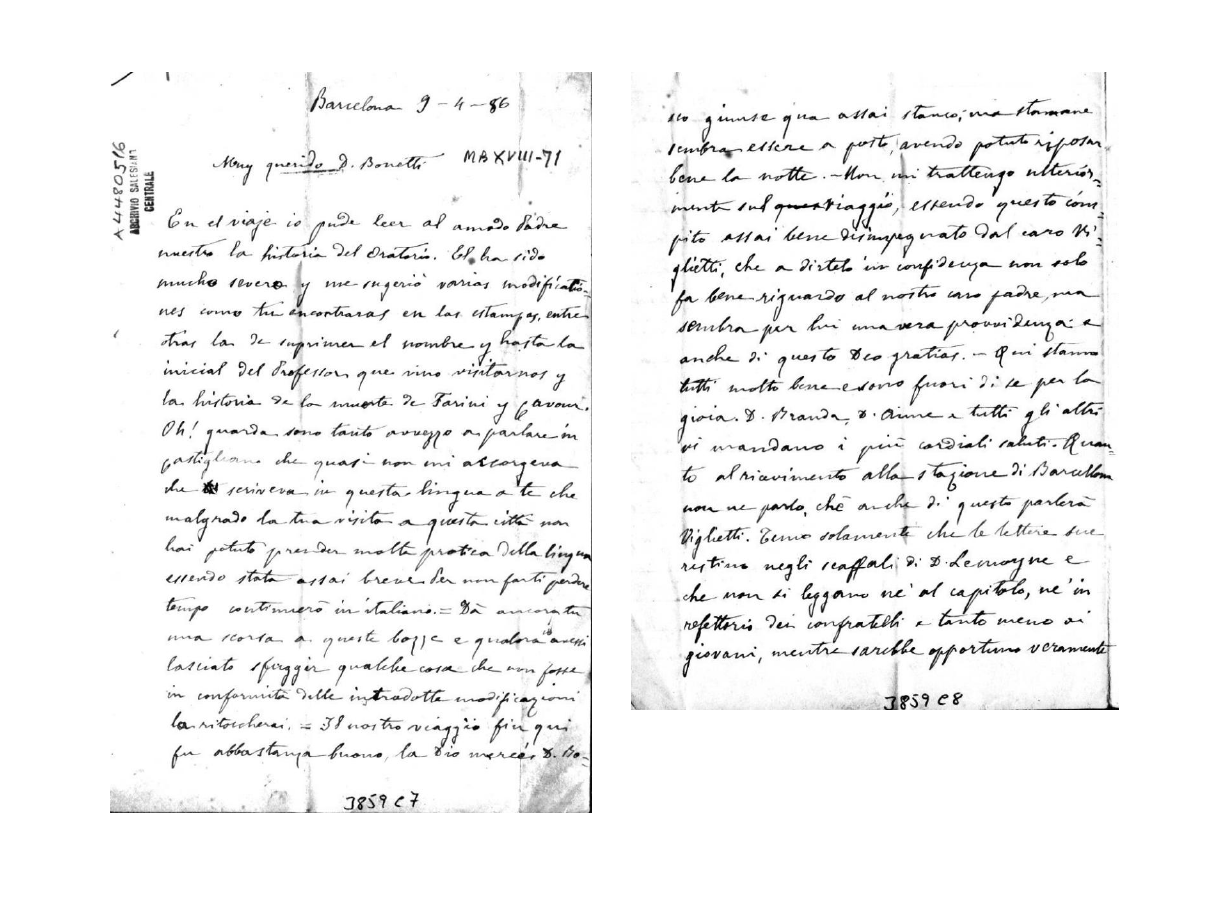 Barcelona 9-4-86
A4480516
ARCHIVIO SALESIANO
CENTRALE
Muy querido D. Bonetti
MB XVIII-71
En el viaje io pude leer al amado Padre
nuestro la historia del Oratorio. El ha sido
mucho severo y me sugeriò varias modificatio-
nes como tu encontraras en las estampas, entre
otras la de suprimer el nombre y hasta la
inicial del Professor que vino visitarnos y
la historia de la muerte de Farini y Cavour.
Oh! guarda sono tanto avvezzo a parlare in
castigliano che quasi non mi accorgeva
che scriveva in questa lingua a te che
malgrado la tua visita a questa città non
hai potuto prender molta pratica della lingua
essendo stata assai breve. Per non farti perdere
tempo continuerò in italiano. = Dà ancora tu
una scorsa a queste bozze e qualora io avessi
lasciato sfuggir qualche cosa che non fosse
in conformità delle introdotte modificazioni
la ritoccherai. = Il nostro viaggio fin qui
fu abbastanza buono, la Dio mercés D. Bo-
3859 C7
sco giunse qua assai stanco; ma stamane
sembra essere a posto, avendo potuto riposar
bene la notte. - Non mi trattengo ulterior-
mente sul viaggio, essendo questo com-
pito assai bene disimpegnato dal caro Vi-
glietti, che a dirtelo in confidenza non solo
fa bene riguardo al nostro caro padre, ma
sembra per lui una vera provvidenza e
anche di questo Deo gratias. - Qui stanno
tutti molto bene e sono fuori di se per la
gioia. D. Branda, D. Aime e tutti gli altri
vi mandano i più cordiali saluti. Quan-
to al ricevimento alla stazione di Barcellona
non ne parlo, chè anche di questo parlerà
Viglietti. Temo solamente che le lettere sue
restino negli scaffali di D. Lemoyne e
che non si leggano nè al capitolo, nè in
refettorio dei confratelli e tanto meno ai
giovani, mentre sarebbe opportuno veramente
3859 C8